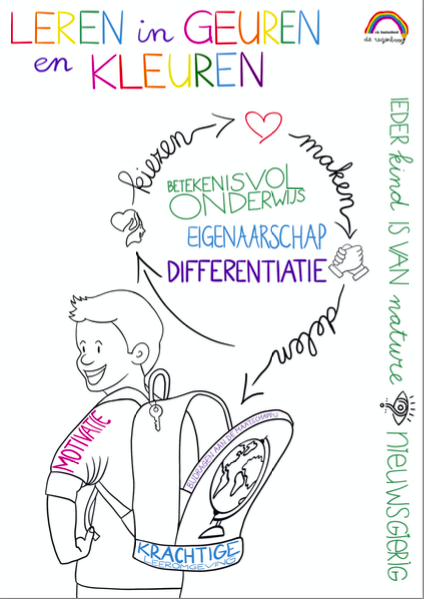 LEREN in GEUREN
en KLEUREN
de regenboog
IEDER kind IS VAN nature NIEUWSGIERIG
kiezen
maken
delen
BETEKENISVOL
ONDERWIJS
EIGENAARSCHAP
DIFFERENTIATIE
MOTIVATIE
BIJDRAGEN AAN DE MAATSCHAPPIJ
KRACHTIGE
LEEROMGEVING